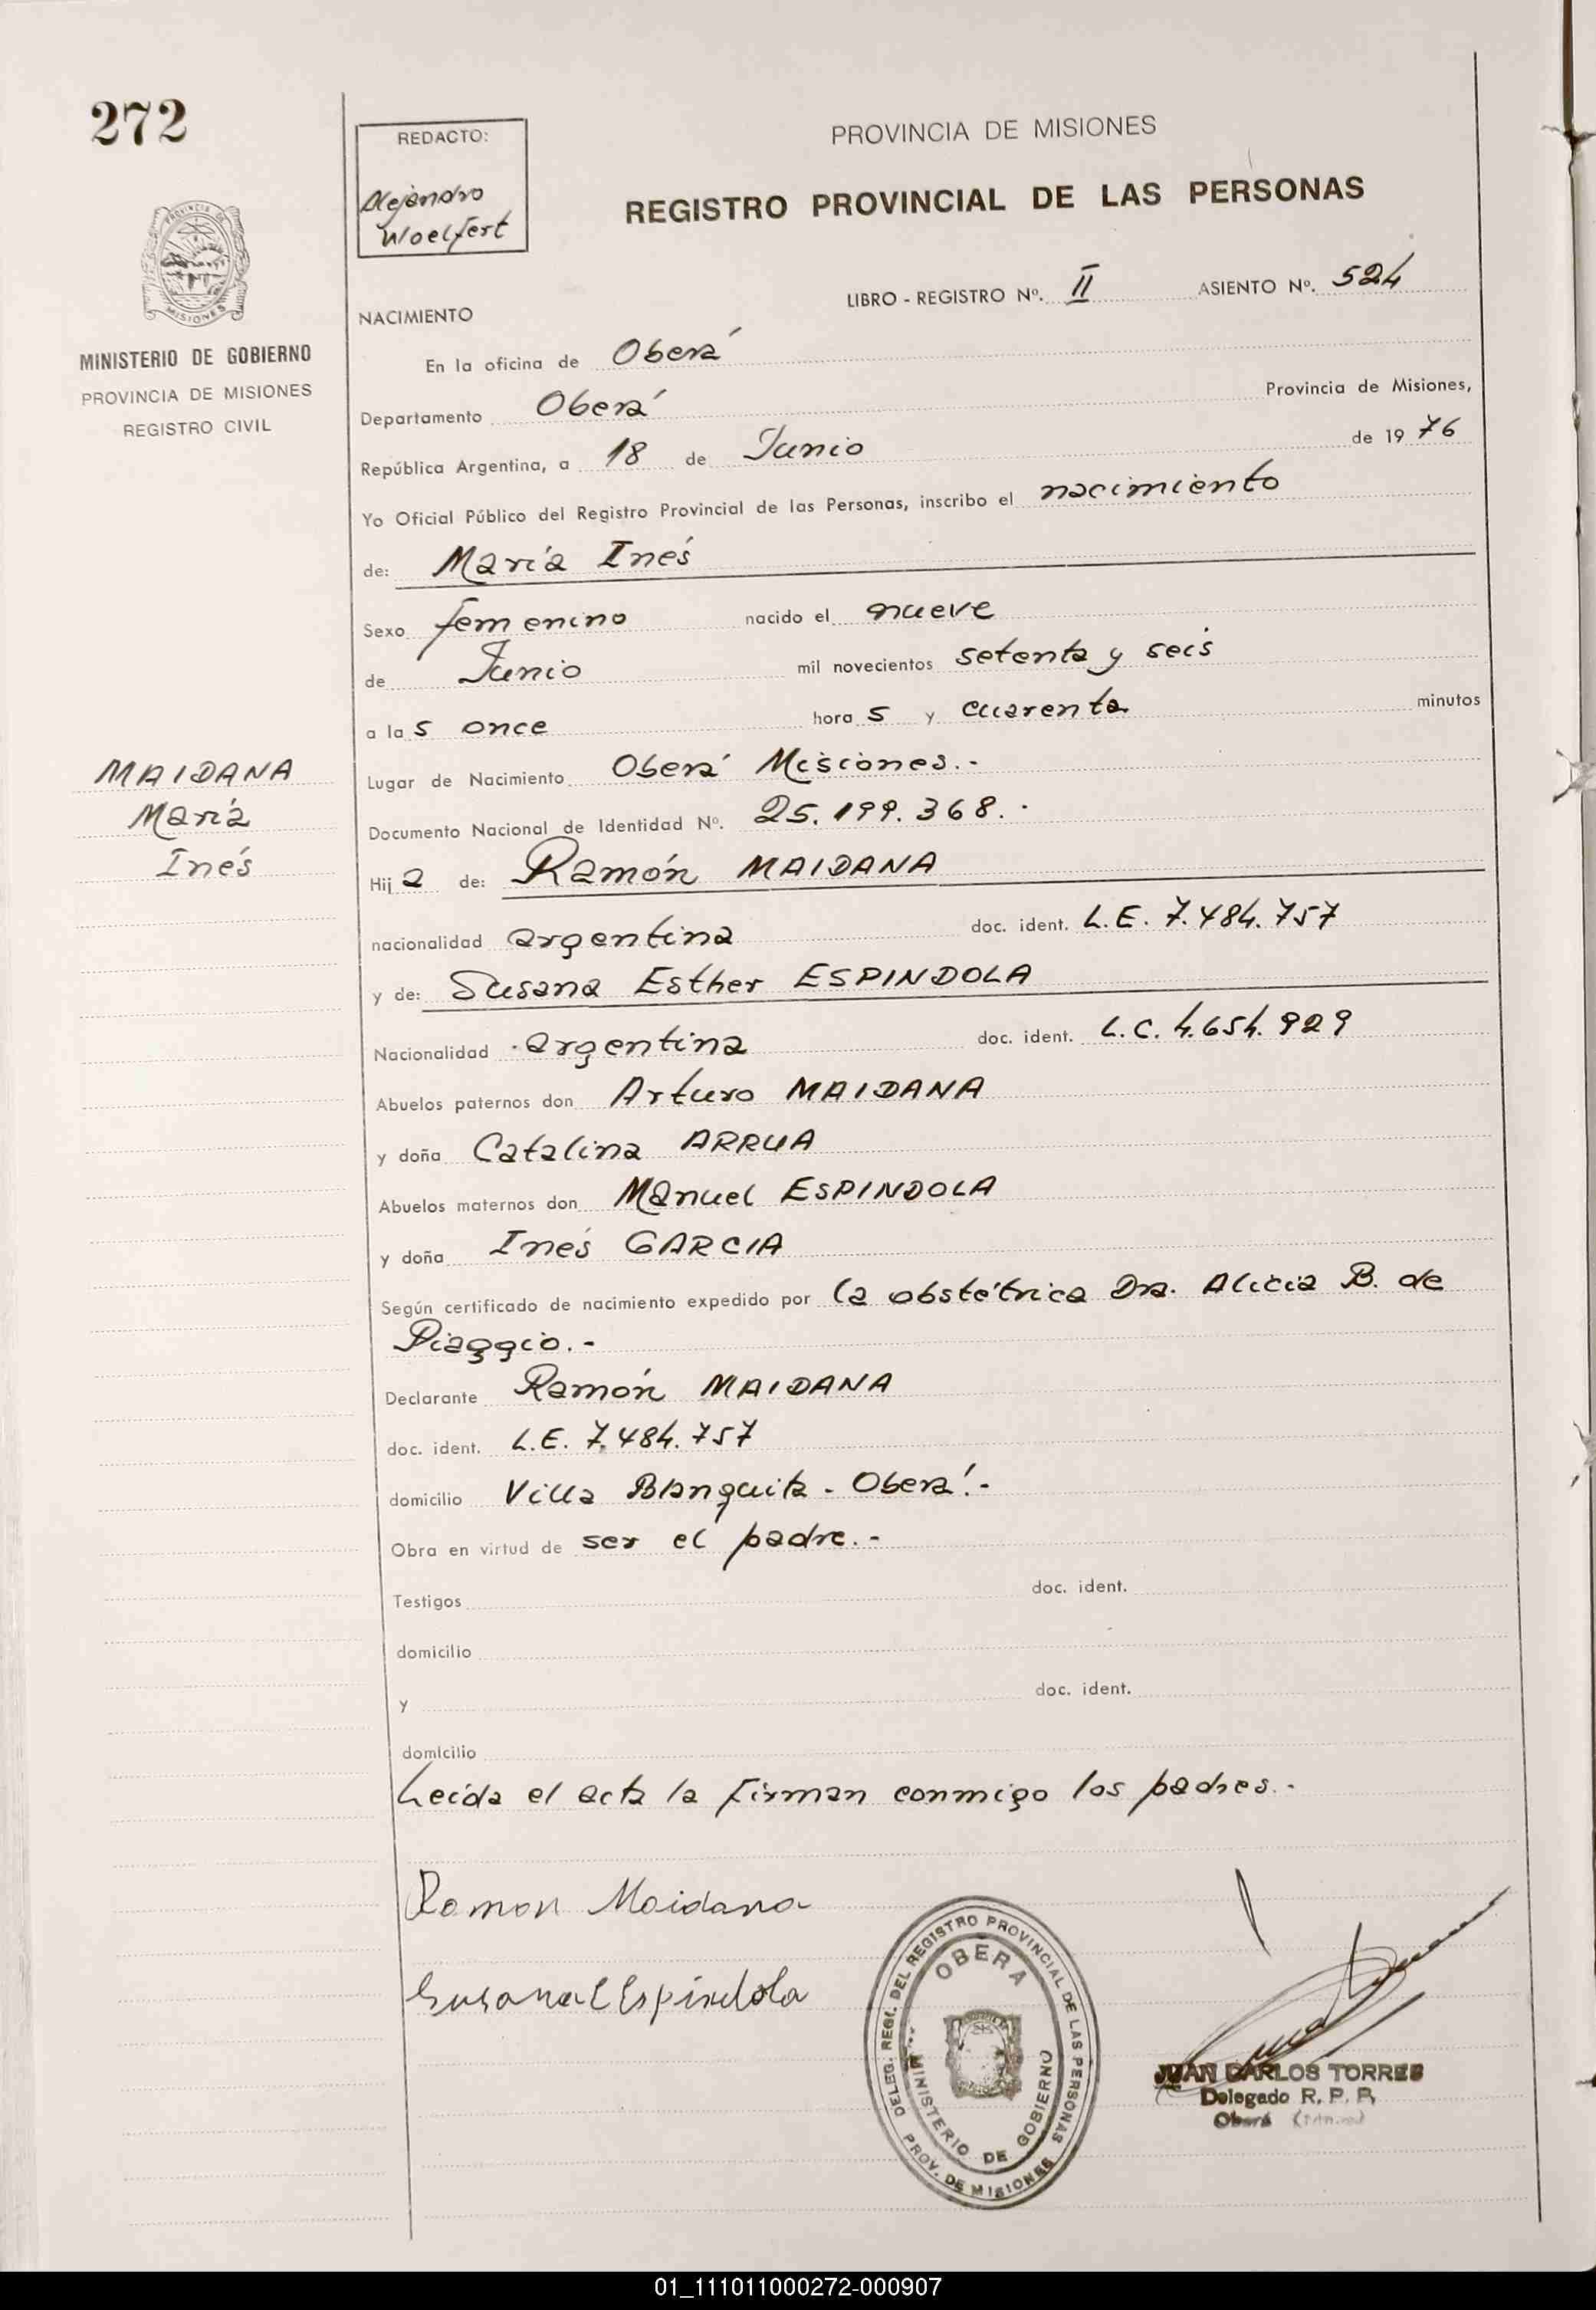 272
REDACTO:
Alejandro
Woelfert
PROVINCIA DE MISIONES
REGISTRO PROVINCIAL DE LAS PERSONAS
PROVINCIA DE
MISIONES
MINISTERIO DE GOBIERNO
PROVINCIA DE MISIONES
REGISTRO CIVIL
LIBRO - REGISTRO Nº. II ASIENTO Nº. 524
NACIMIENTO
En la oficina de Oberá
Departamento Oberá Provincia de Misiones,
República Argentina, a 18 de Junio de 1976
Yo Oficial Público del Registro Provincial de las Personas, inscribo el nacimiento
de: María Inés
Sexo femenino nacido el nueve
de Junio mil novecientos setenta y seis
a las once horas y cuarenta minutos
MAIDANA
María
Inés
Lugar de Nacimiento Oberá Misiones.-
Documento Nacional de Identidad Nº. 25.199.368.
Hija de: Ramón MAIDANA
nacionalidad argentina doc. ident. L.E. 7.484.757
y de: Susana Esther ESPINDOLA
Nacionalidad argentina doc. ident. L.C. 4.654.929
Abuelos paternos don Arturo MAIDANA
y doña Catalina ARRUA
Abuelos maternos don Manuel ESPINDOLA
y doña Inés GARCIA
Según certificado de nacimiento expedido por la obstétrica Dra. Alicia B. de
Piaggio.-
Declarante Ramón MAIDANA
doc. ident. L.E. 7.484.757
domicilio Villa Blanquita - Oberá.-
Obra en virtud de ser el padre.-
Testigos doc. ident.
domicilio
y doc. ident.
domicilio
Leída el acta la firman conmigo los padres.-
Ramon Maidana
Susana E Espindola
DELEG. REGI. DEL REGISTRO PROVINCIAL DE LAS PERSONAS
OBERA
MINISTERIO DE GOBIERNO
PROV. DE MISIONES
JUAN CARLOS TORRES
Delegado R. P. P.
Oberá
01_111011000272-000907